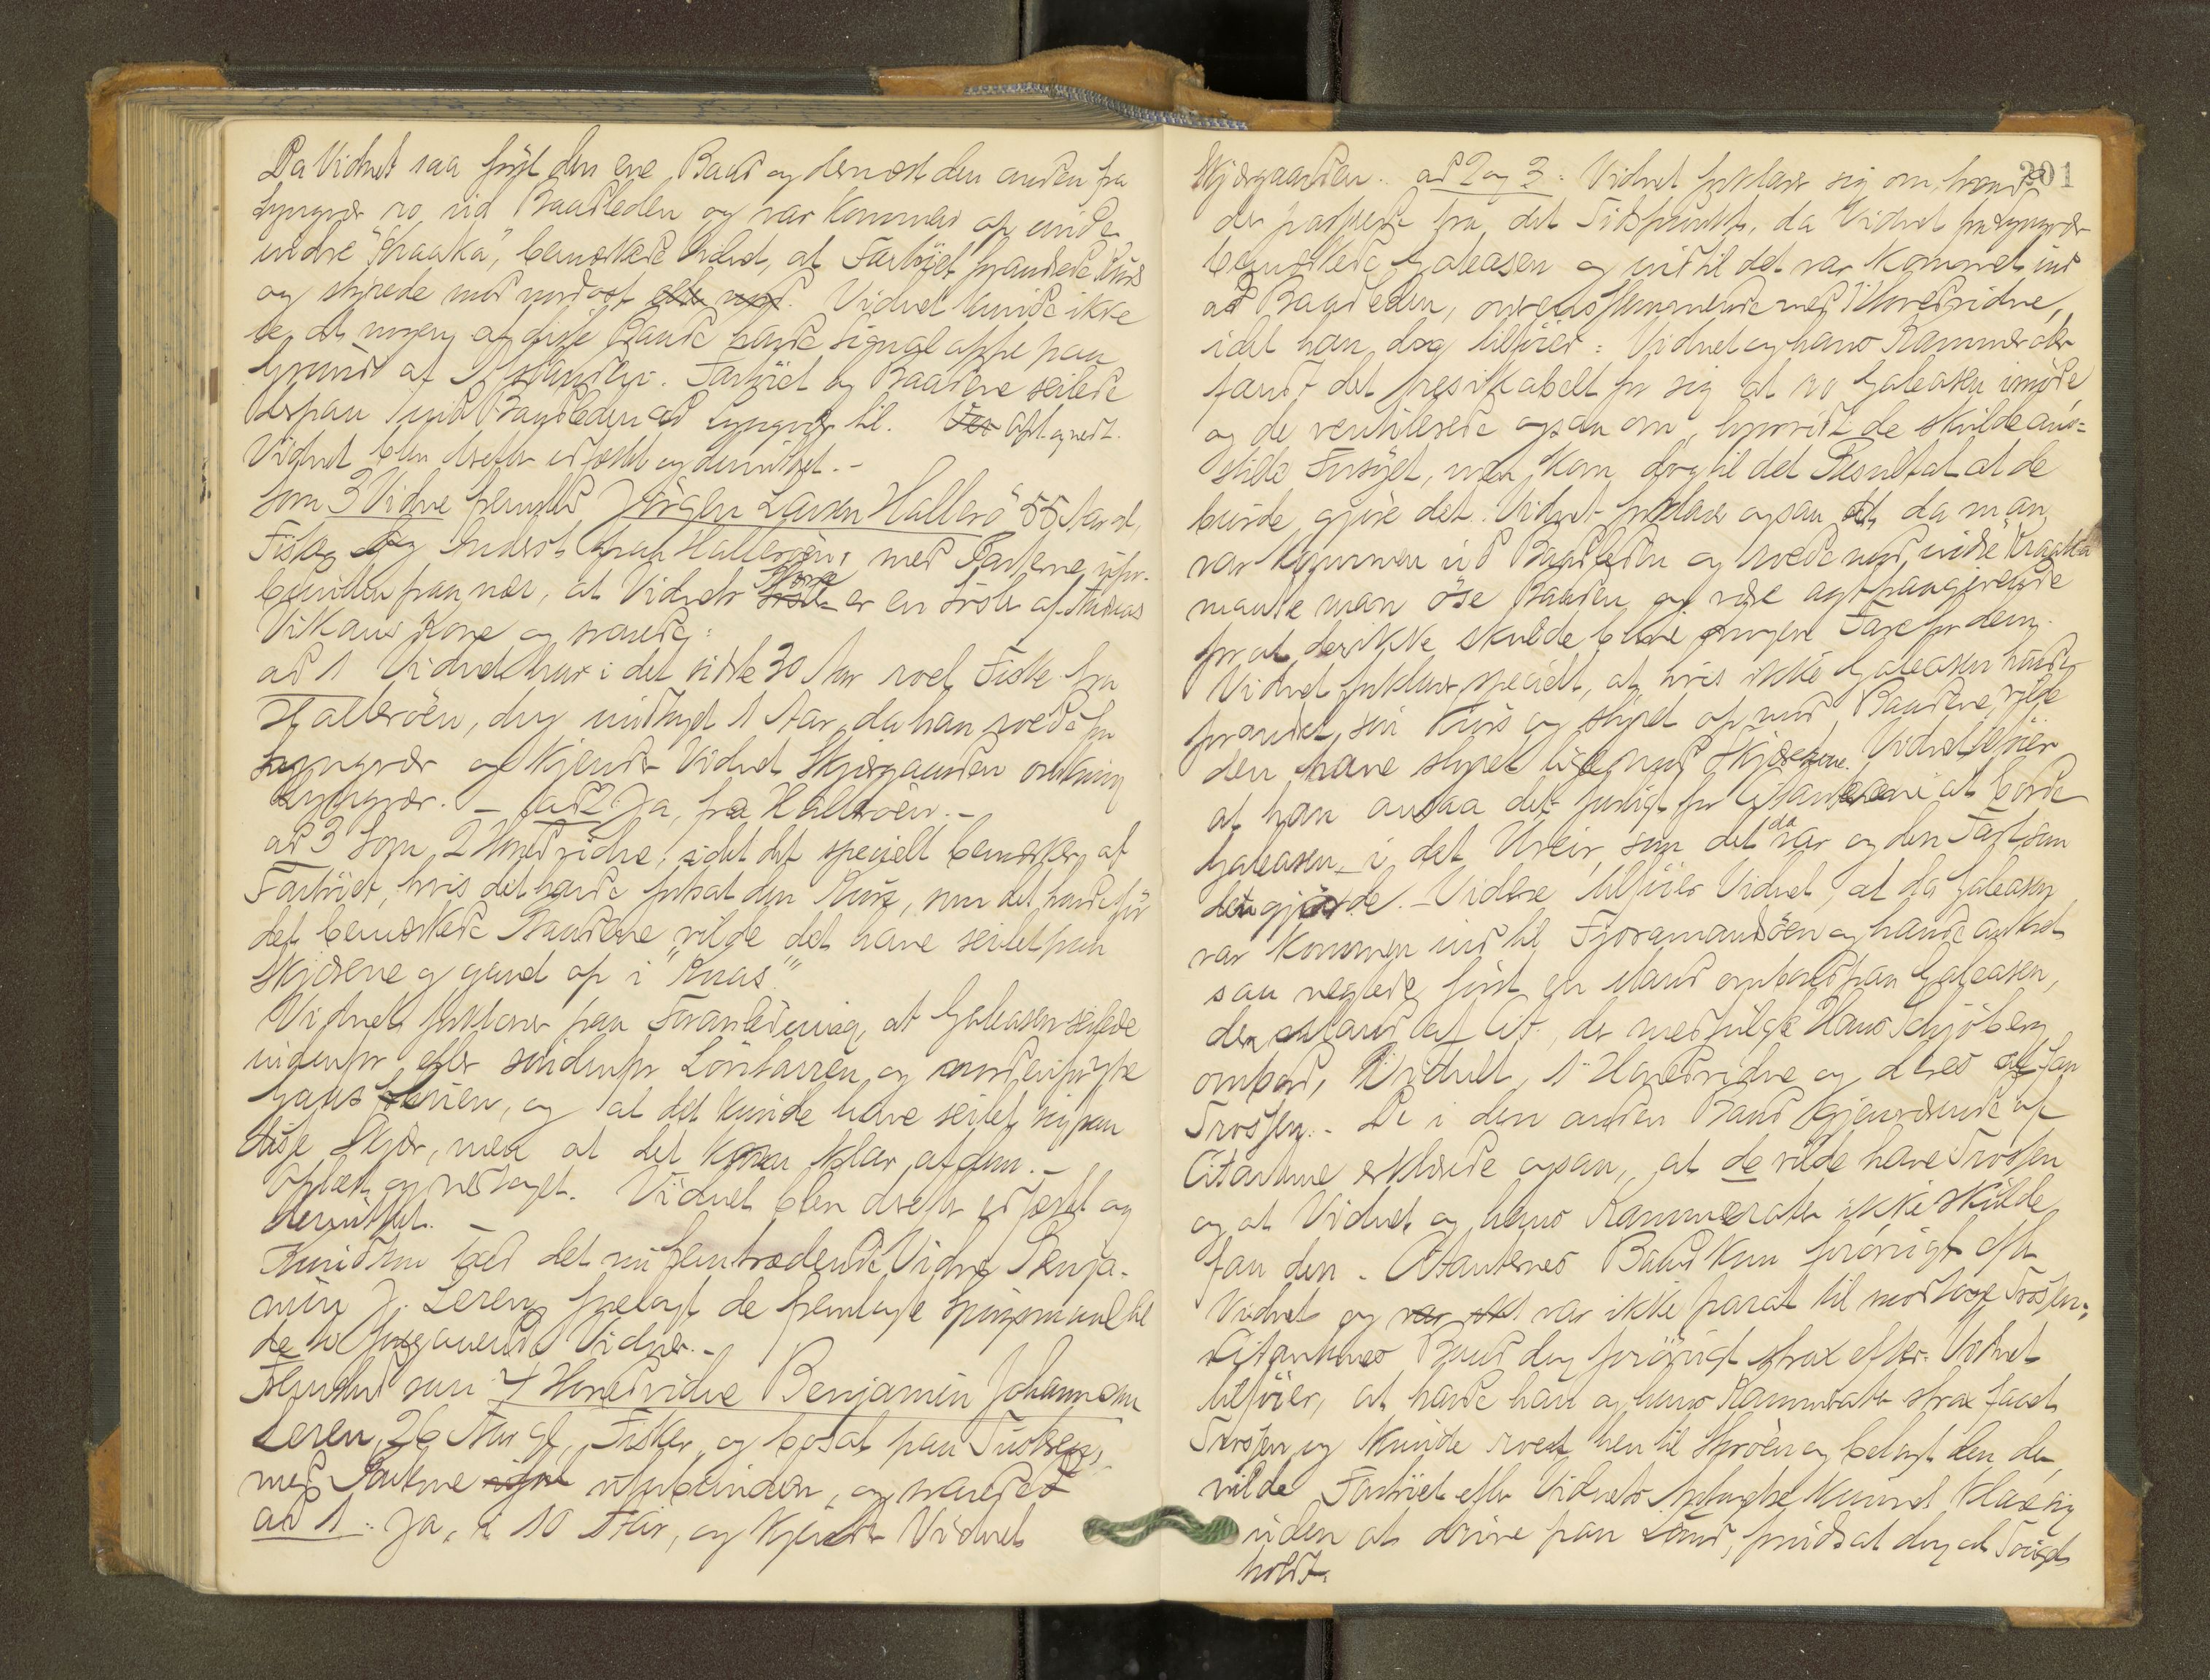 Da Vidnet saa først den ene Baad og dernæst den anden fra
Lyngvær ro ud Baadleden og var kommen op under
indre "Kraaka", bemærkede Vidnet, at Fartøiet forandrede Kurs
og styrede mod nordost eller nord. Vidnet kunde ikke
se, at nogen af disse Baade havde Signal oppe paa
Grund af Afstanden. Fartøiet og Baadene seilede
derpaa ind Baadleden ad Lyngvær til. Ved Oplæst og vedt.
Vidnet blev derefter edfæstet og demitteret. -
Som 3 Vidne fremstod Jørgen Larsen Hallerö 55 Aar gl,
Fisker og bosat paa Hallerøen, med Parterne ufor-
bunden paa nær, at Vidnets Kone er en Søster af Andreas
Vikans Kone og svarede:
ad 1 Vidnet har i det sidste 30 Aar roet Fiske fra
Hallerøen, dog undtagt 1 Aar, da han roede fra
Lyngvær og kjender Vidnet Skjærgaarden omkring
Lyngvær. - ad 2 Ja, fra Hallerøen. -
ad 3 Som 2 Hovedvidne, idet det specielt bemærker, at
Fartøiet, hvis det havde fortsat den Kurs, som det havde før
det bemærkede Baadene vilde det have seilet paa
Skjærene og gaaet op i "Knas".
Vidnet forklarer paa Foranledning, at Galeasen seilede
indenfor eller søndenfor og nordenfor
og at det kunde have seilet sig paa
disse Skjær, men at det kom klar af dem. -
Oplæst og vedtaget. Vidnet blev derefter edfæstet og
demitteret. -
det nu fremtrædende Vidne Benja-
min J. Leren forelagt de fremlagte Spørgsmaal til
de to foregaaende Vidner. -
Fremstod som 4 Hovedvidne Benjamin Johannesen
Leren, 26 Aar gl., Fisker og bosat paa
med Parterne uforbunden, og svarede
ad 1: Ja, i 10 Aar, og kjender Vidnet
201
Skjærgaarden. ad 2 og 3: Vidnet forklarer sig om, hvad
der passerede fra det Tidspunkt, da Vidnet fra Lyngvær
bemærkede Galeasen og indtil det var kommet ind
ad Baadleden, overensstemmende med 1 Hovedvidne,
idet han dog tilføier: Vidnet og hans Kammerater
fandt det for sig at ro Galeasen imøde,
og de ventilerede ogsaa om, hvorvidt de skulde an-
stille Forsøget, men kom dog til det Resultat at de
burde gjøre det. Vidnet forklarer ogsaa at, da man
var kommen ud Baadleden og roede mod indre "Kraaka"
maatte man øse Baaden og være agtpaagivende
for at der ikke skulde blive nogen Fare for dem.
Vidnet forklarer specielt, at hvis ikke Galeasen havde
forandret sin Kurs og styret op mod Baadene, vilde
den have styret lige mod Skjærene. Vidnet tilføier
at han ansaa det farligt for Citanterne at borde
Galeasen i det Uveir, som det da var og den Fart som
den gjorde. - Videre tilføier Vidnet, at da Galeasen
var kommen ind til Fjøramandsøen og havde ankret
saa negtede først en Mand ombord paa Galeasen,
den Mand af Cit. der medfulgte Hans Schjöberg
ombord, Vidnet, 1 Hovedvidne og deres at faa
Trossen. - De i den anden Baad gjenværende af
Citanterne erklærede ogsaa, at de vilde have Trossen
og at Vidnet og hans Kammerater ikke skulde
faa den. - Citanternes Baad kom forøvrigt efter
Vidnet og var ikke var ikke parat til modtage Trossen;
Citanternes Baad dog forøvrigt strax efter. Vidnet
tilføier, at havde han og hans Kammerater strax faaet
Trossen og kunde roet hen til Skrøen og belagt den der
vilde Fartøiet efter Vidnets Skjønnelse kunnet klare sig
uden at drive paa Land, forudsat dog at Touget
holdt.